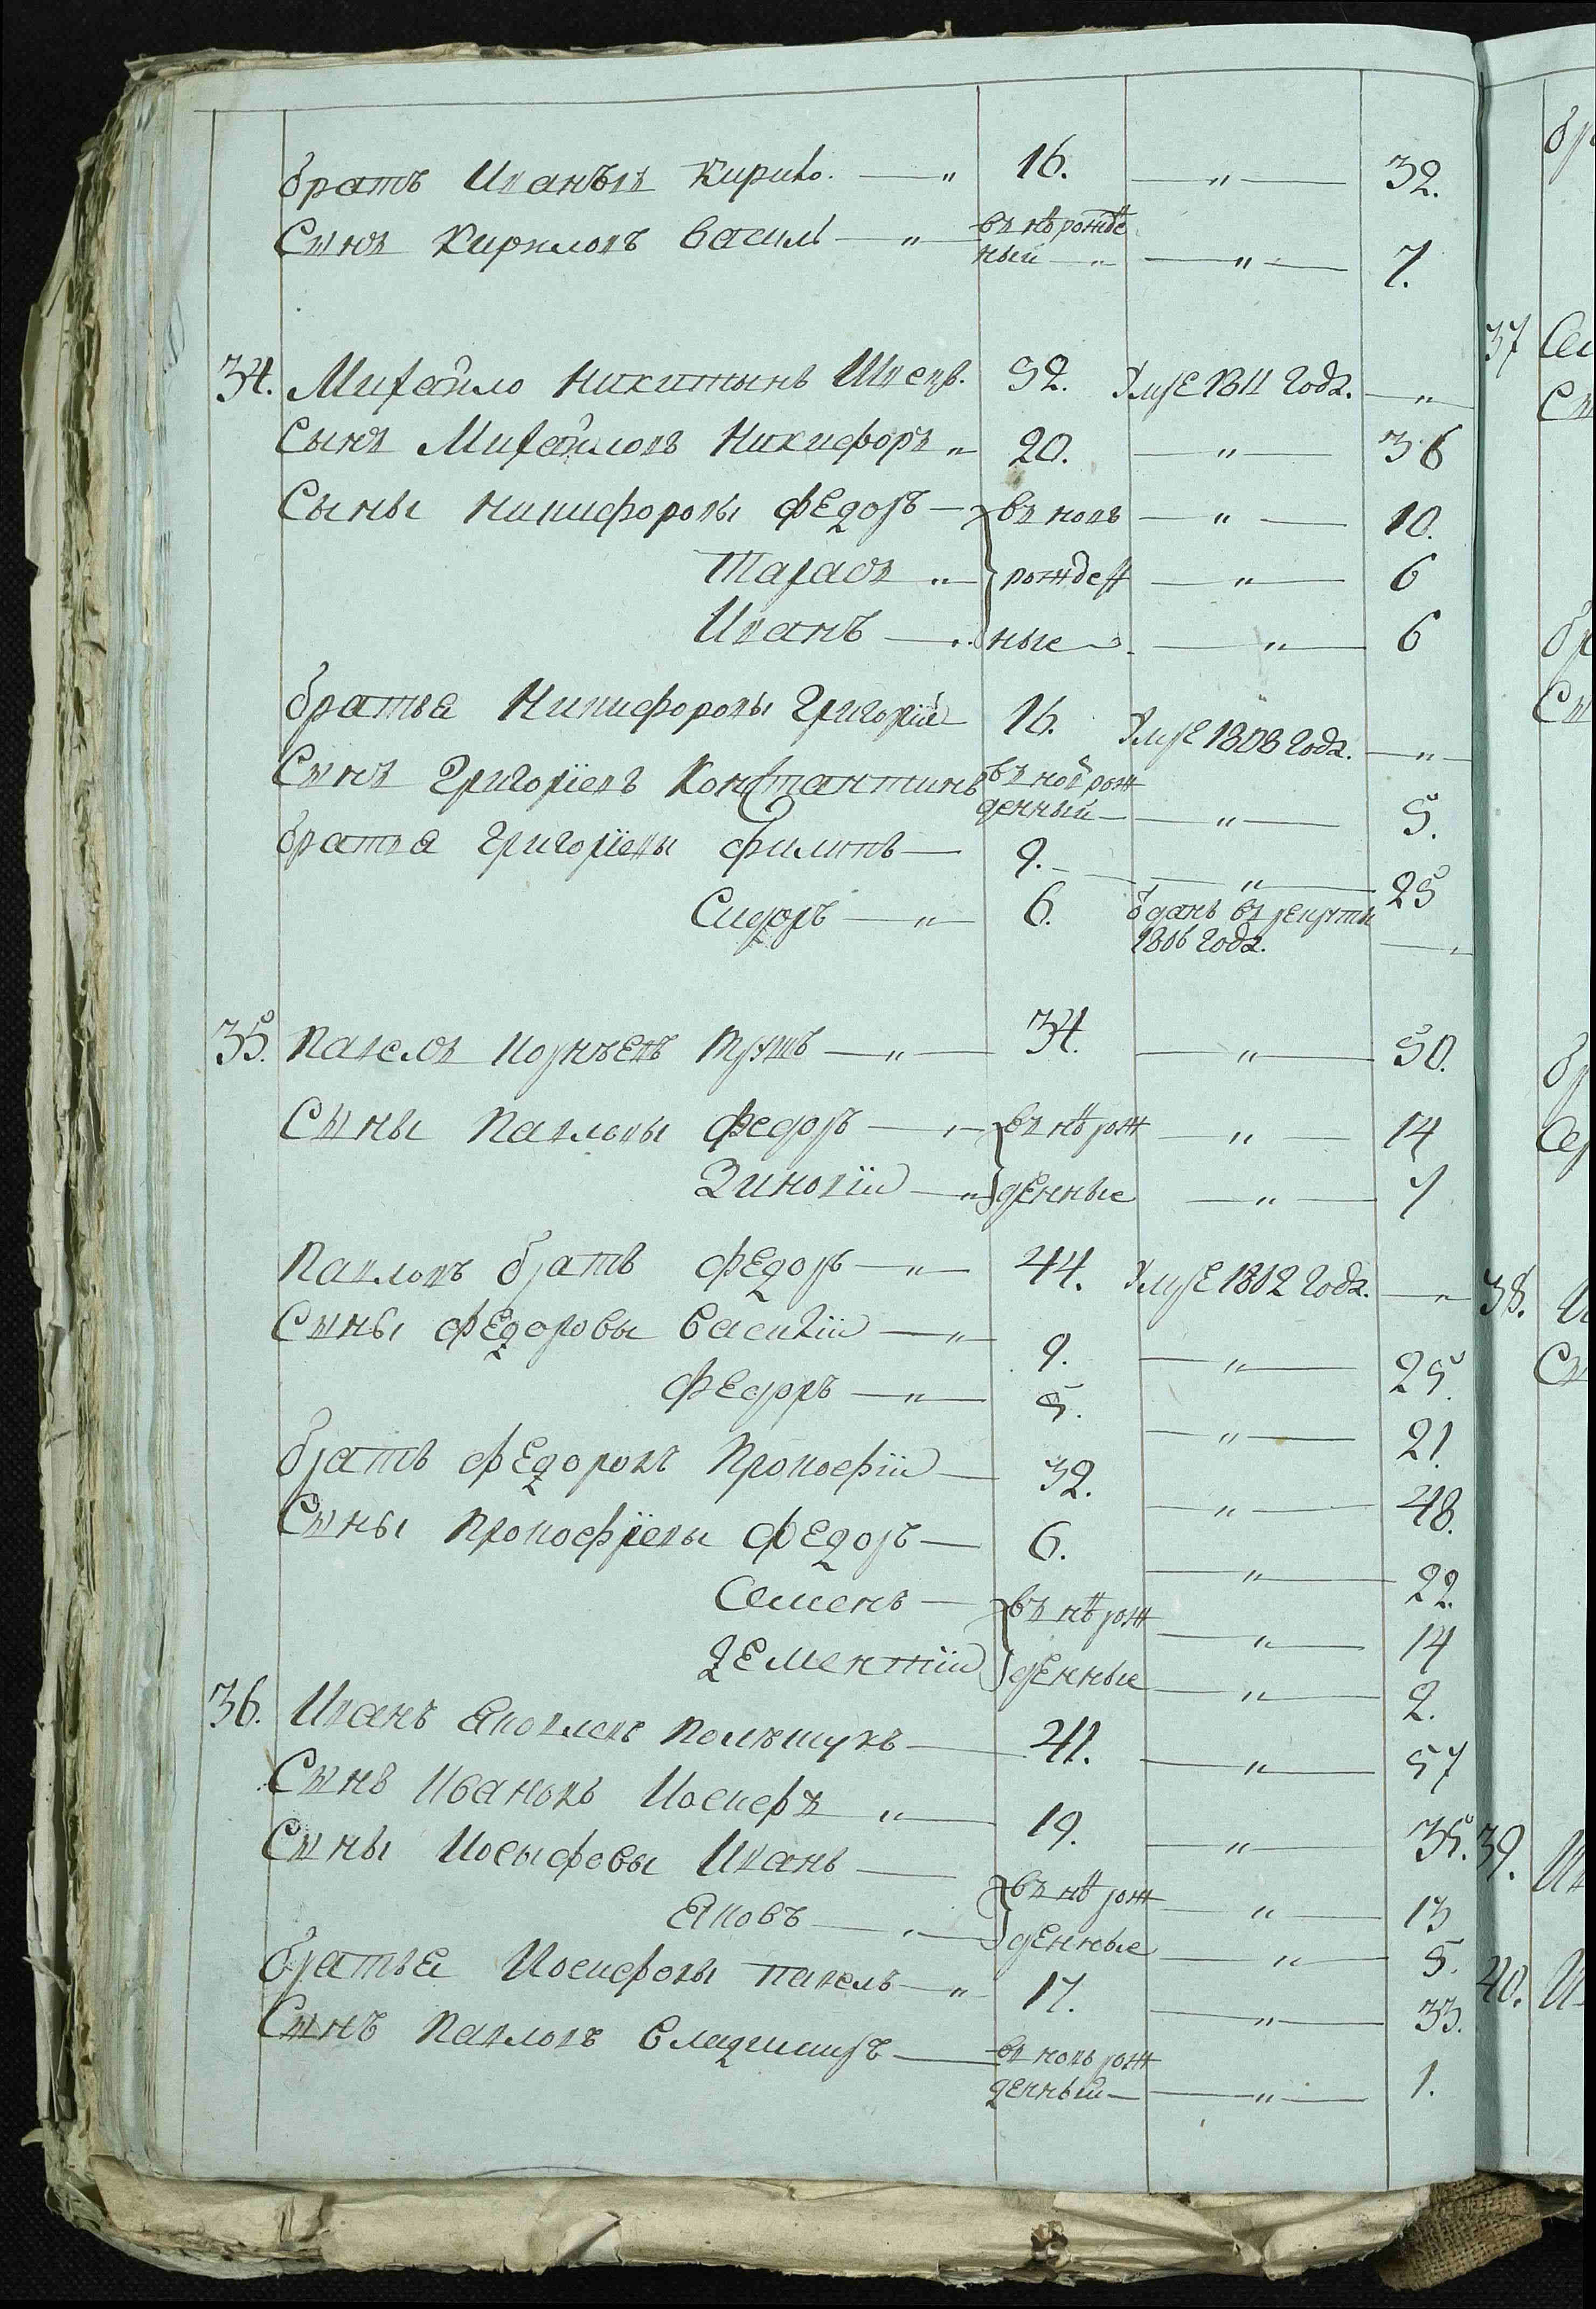 братъ Ивановъ Кирило. — " 16. — " — 32.
Сынъ Кириловъ Василь — " — въ нѣ рожде
ный — " — " — 7.
34. Михайло Никитынъ Швецъ. 52. Умре 1811 года. — "
Сынъ Михайловъ Никифоръ " 20. — " — 36
Сыны Никифоровы Федоръ — въ новъ — " — 10.
Тарасъ " — рожден — " — 6
Иванъ — " ные — " — 6
братья Никифоровы Григорій 16. Умре 1808 года. — "
Сынъ Григоріевъ Константинъ въ нов рож
денный — " — 5.
братья Григоріевы Филипъ — 9. — " — 25
Сидоръ — " — 6. ѿданъ въ рекруты
1806 года. — "
35. Павелъ Корнѣевъ Трушъ — " — 34. — " — 50.
Сыны Павловы Федоръ — " — въ нѣ рож — " — 14
Зиновій — " денные — " — 7
Павловъ братъ Федоръ — " — 44. Умре 1802 года. — "
Сыны Федоровы Василій — " — 9. — " — 25.
Федоръ — " — 5. — " — 21.
братъ Федоровъ Прокофій — 32. — " — 48.
Сыны Прокофіевы Федоръ — 6. — " — 22.
Семенъ — въ нѣ рож — " — 14
Дементій денные — " — 2.
36. Иванъ Яковлевъ Полѣщукъ — 41. — " — 57
Сынъ Ивановъ Иосифъ " — 19. — " — 35.
Сыны Иосыфовы Иванъ — въ нѣ рож — " — 13
Яковъ — " — денные — " — 5.
братья Иосифовы Павелъ — " 17. — " — 33.
Сынъ Павловъ Владимиръ — въ новъ рож
денный — " — 1.
37
38.
39.
40.